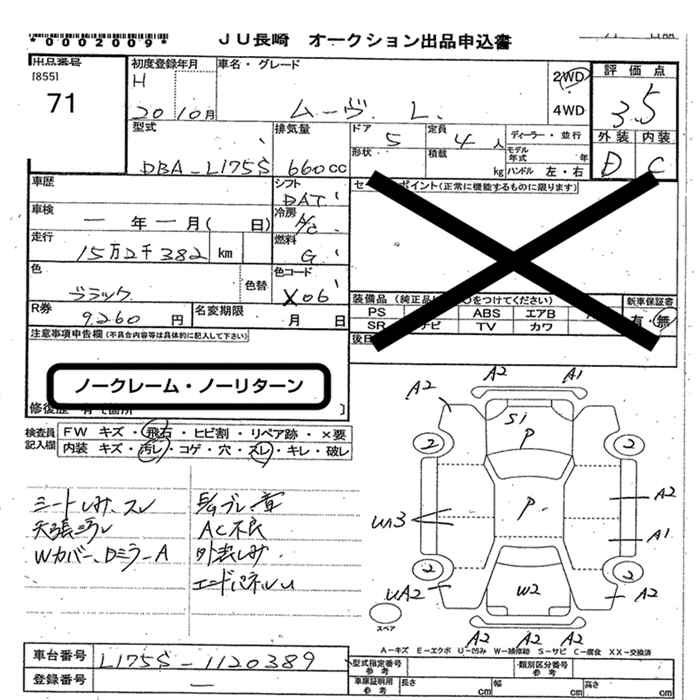 *0002009*
JU長崎 オークション出品申込書
出品番号
[855]
71
初度登録年月
H
20 10月
車名・グレード
ムーヴ L
2WD
4WD
評価点
3.5
外装 内装
D C
型式
DBA-L175S
排気量
660cc
ドア
5
定員
4人
ディーラー・並行
形状
積載
kg
モデル年式 年
ハンドル 左・右
車歴
シフト
DAT
車検
一年一月( 日)
冷房
A/C
走行
15万2千382 km
燃料
G
色
ブラック
色替
色コード
X06
R券
9,260 円
名変期限
月 日
ポイント(正常に機能するものに限ります)
装備品 (純正品 をつけてください)
新車保証書
有・無
PS ABS エアB
SR ナビ TV カワ
注意事項申告欄(不具合内容等は具体的に記入して下さい)
ノークレーム・ノーリターン
修復歴
検査員記入欄
FW キズ・飛石・ヒビ割・リペア跡・×要
内装 キズ・汚レ・コゲ・穴・スレ・キレ・破レ
シートしみ、スレ
天張ミラレ
Wカバー、Dミラー A
AC不良
外装しみ
エンドパネルU
A2 A2 A1
S1
P
2 2
P
A2
UA3
A1
2 2
UA2 W2 A2
A2 A2 A2
スペア
A−キズ E−エクボ U−凹み W−補修跡 S−サビ C−腐食 XX−交換済
車台番号 L175S-1120389
登録番号 —
型式指定番号 参考
類別区分番号 参考
車庫証明用 参考
長さ cm 幅 cm 高さ cm